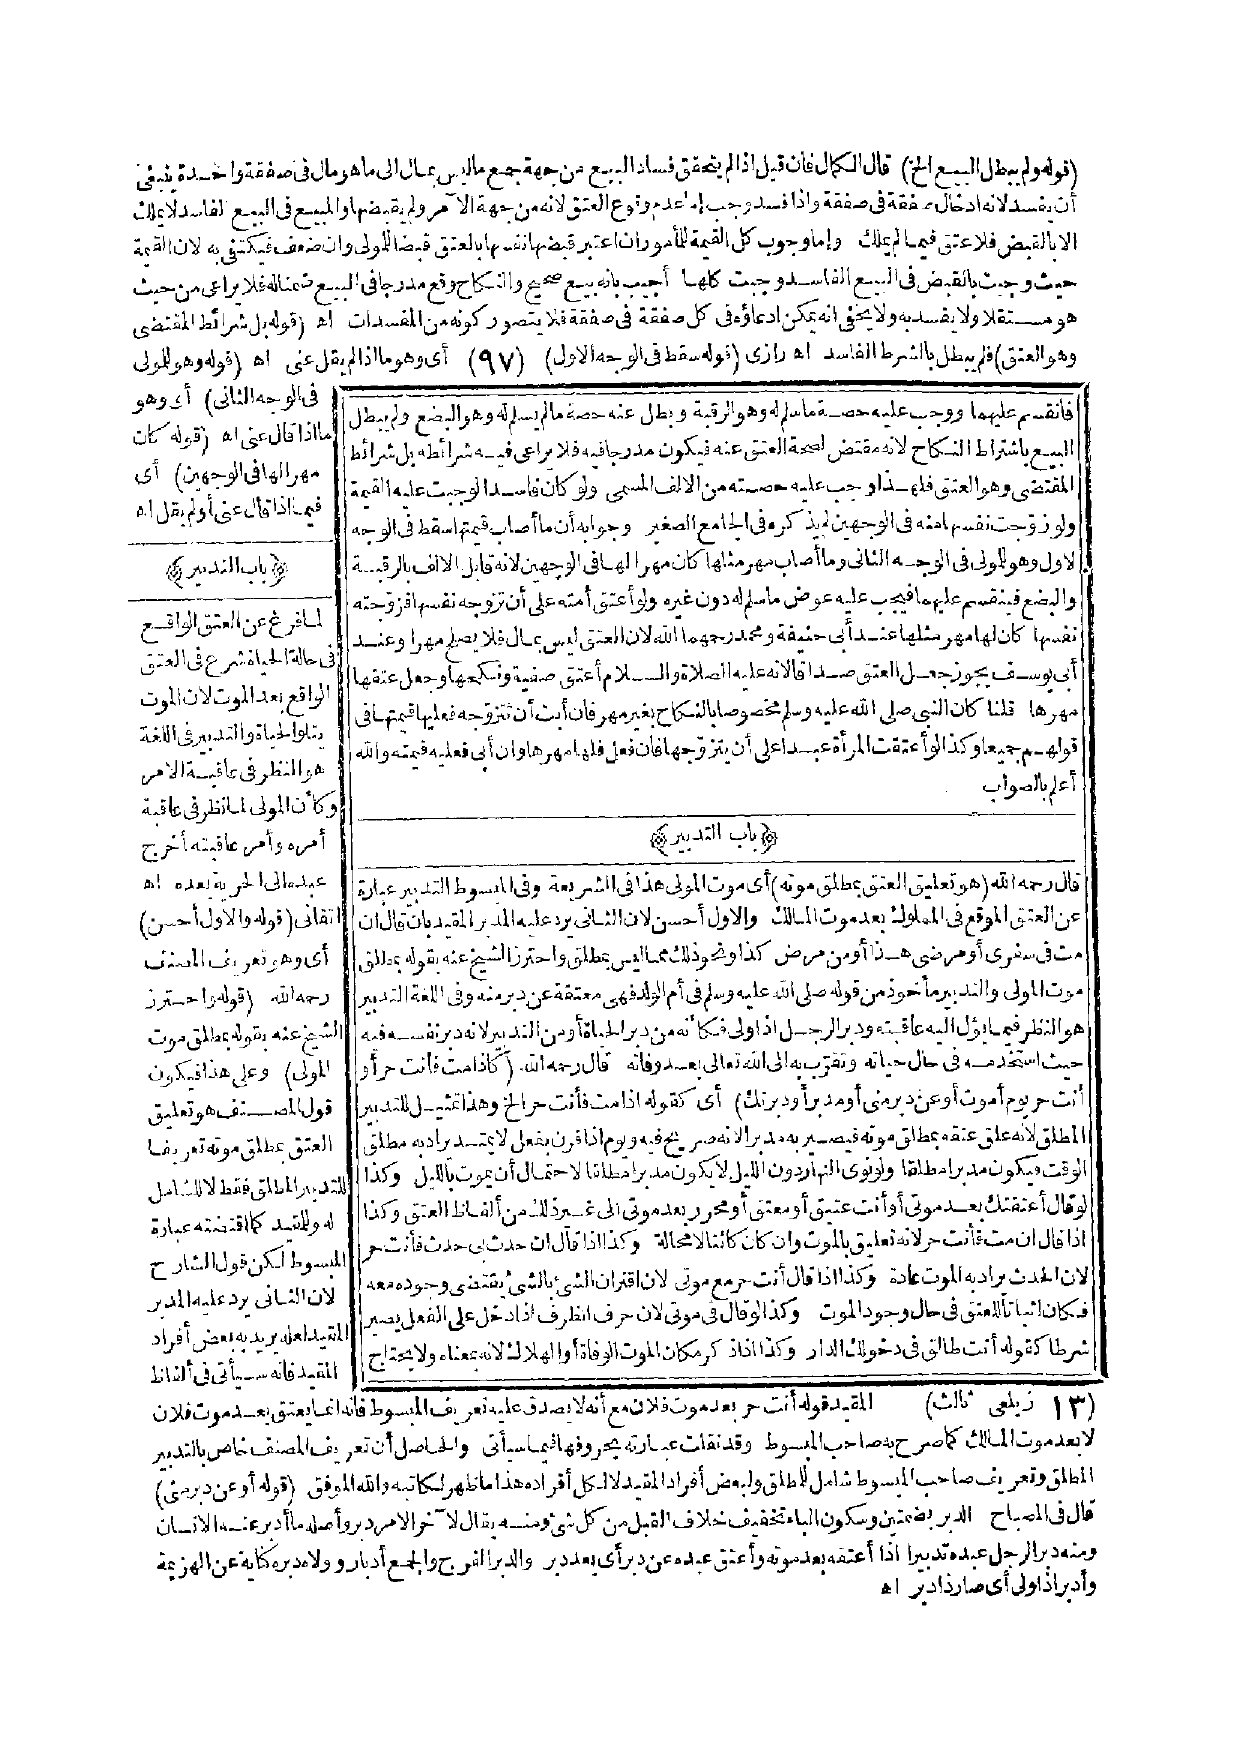 (قوله ولم يبطل البيع الخ) قال الكمال فان قيل اذا لم يتحقق فساد البيع من جهة جمع ما ليس بمال الى ما هو مال فى صفقة واحدة ينبغى
أن يفسد لانه ادخال صفقة فى صفقة واذا فسد وجب إما عدم وقوع العتق لانه من جهة الآمر ولم يقبضها والمبيع فى البيع الفاسد لا يملك
الا بالقبض فلا عتق فيما لم يملك وإما وجوب كل القيمة للأمور ان اعتبر قبضها نفسها بالعتق قبضا للولى وان ضعف فيكتفى به لان القيمة
حيث وجبت بالقبض فى البيع الفاسد وجبت كلها أجيب بانه بيع صحيح والنكاح وقع مدرجا فى البيع ضمنا له فلا يراعى من حيث
هو مستقلا ولا يفسد به ولا يخفى انه يمكن ادعاؤه فى كل صفقة فى صفقة فلا يتصور كونه من المفسدات اه (قوله بل شرائط المقتضى
وهو العتق) فلم يبطل بالشرط الفاسد اه رازى (قوله سقط فى الوجه الاول) (٩٧) أى وهو ما اذا لم يقل عنى اه (قوله وهو للولى
فى الوجه الثانى) أى وهو
ما اذا قال عنى اه (قوله كان
مهرا لها فى الوجهين) أى
فيما اذا قال عنى أو لم يقل اه
﴿باب التدبير﴾
لما فرغ عن العتق الواقع
فى حالة الحياة شرع فى العتق
الواقع بعد الموت لان الموت
يتلو الحياة والتدبير فى اللغة
هو النظر فى عاقبة الامر
وكأن المولى لما نظر فى عاقبة
أمره وأمر عاقبته أخرج
عبده الى الحرية بعده اه
اتقانى (قوله والاول أحسن)
أى وهو تعريف المصنف
رحمه الله (قوله واحترز
الشيخ عنه بقوله بمطلق موت
المولى) وعلى هذا فيكون
قول المصنف هو تعليق
العتق بمطلق موته تعريفا
للتدبير المطلق فقط لا للشامل
له وللمقيد كما اقتضته عبارة
المبسوط لكن قول الشارح
لان الثانى يرد عليه المدبر
المقيد لعله يريد به بعض أفراد
المقيد فانه سيأتى فى ألفاظ
فانقسم عليهما ووجب عليه حصة ما سلم له وهو الرقبة وبطل عنه حصة ما لم يسلم له وهو البضع ولم يبطل
البيع باشتراط النكاح لانه مقتض لصحة العتق عنه فيكون مدرجا فيه فلا يراعى فيه شرائطه بل شرائط
المقتضى وهو العتق فلهذا وجب عليه حصته من الالف المسمى ولو كان فاسدا لوجبت عليه القيمة
ولو زوّجت نفسها منه فى الوجهين لم يذكره فى الجامع الصغير وجوابه أن ما أصاب قيمتها سقط فى الوجه
لاول وهو للمولى فى الوجه الثانى وما أصاب مهر مثلها كان مهرا لها فى الوجهين لانه قابل الالف بالرقبة
والبضع فينقسم عليهما فيجب عليه عوض ما سلم له دون غيره ولو أعتق أمته على أن تزوجه نفسها فزوّجته
نفسها كان لها مهر مثلها عند أبى حنيفة ومحمد رحمهما الله لان العتق ليس بمال فلا يصلح مهرا وعند
أبى يوسف يجوز جعل العتق صداقا لانه عليه الصلاة والسلام أعتق صفية ونكحها وجعل عتقها
مهرها قلنا كان النبى صلى الله عليه وسلم مخصوصا بالنكاح بغير مهر فان أبت أن تتزوّجه فعليها قيمتها فى
قولهم جميعا وكذا لو أعتقت المرأة عبدا على أن يتزوّجها فان فعل فلها مهرها وان أبى فعليه قيمته والله
أعلم بالصواب
﴿باب التدبير﴾
قال رحمه الله (هو تعليق العتق بمطلق موته) أى موت المولى هذا فى الشريعة وفى المبسوط التدبير عبارة
عن العتق الموقع فى المملوك بعد موت المالك والاول أحسن لان الثانى يرد عليه المدبر المقيد بان قال ان
مت فى سفرى أو مرضى هذا أو من مرض كذا ونحو ذلك مما ليس بمطلق واحترز الشيخ عنه بقوله بمطلق
موت المولى والتدبير مأخوذ من قوله صلى الله عليه وسلم فى أم الولد فهى معتقة عن دبر منه وفى اللغة التدبير
هو النظر فيما يؤل اليه عاقبته ودبر الرجل اذا ولى فكأنه من دبر الحياة أو من التدبير لانه دبر نفسه فيه
حيث استخدمه فى حال حياته وتقرّب به الى الله تعالى بعد وفاته قال رحمه الله. (كاذا مت فانت حر أو
أنت حر يوم أموت أو عن دبر منى أو مدبر أو دبرتك) أى كقوله اذا مت فأنت حر الخ وهذا تمثيل للتدبير
المطلق لانه علق عتقه بمطلق موته فيصير به مدبرا لانه صريح فيه ويوم اذا قرن بفعل لا يمتد يراد به مطلق
الوقت فيكون مدبرا مطلقا ولو نوى النهار دون الليل لا يكون مدبرا مطلقا لاحتمال أن يموت بالليل وكذا
لو قال أعتقتك بعد موتى أو أنت عتيق أو معتق أو محرر بعد موتى الى غير ذلك من ألفاظ العتق وكذا
اذا قال ان مت فأنت حر لانه تعليق بالموت وان كان كائنا لا محالة وكذا اذا قال ان حدث بى حدث فأنت حر
لان الحدث يراد به الموت عادة وكذا اذا قال أنت حر مع موتى لان اقتران الشئ بالشئ يقتضى وجوده معه
فكان اثباتا للعتق فى حال وجود الموت وكذا لو قال فى موتى لان حرف الظرف اذا دخل على الفعل يصير
شرطا كقوله أنت طالق فى دخولك الدار وكذا اذا ذكر مكان الموت الوفاة أو الهلاك لانه بمعناه ولا يحتاج
(١٣ زيلعى ثالث) المقيد قوله أنت حر بعد موت فلان مع أنه لا يصدق عليه تعريف المبسوط فانه انما يعتق بعد موت فلان
لا بعد موت المالك كما صرح به صاحب المبسوط وقد نقلت عبارته بحروفها فيما سيأتى والحاصل أن تعريف المصنف خاص بالتدبير
المطلق وتعريف صاحب المبسوط شامل للمطلق ولبعض أفراد المقيد لا لكل أفراده هذا ما ظهر لكاتبه والله الموفق (قوله أو عن دبر منى)
قال فى المصباح الدبر بضمتين وسكون الباء تخفيف خلاف القبل من كل شئ ومنه يقال لآخر الامر دبر وأصله ما أدبر عنه الانسان
ومنه دبر الرجل عبده تدبيرا اذا أعتقه بعد موته وأعتق عبده عن دبر أى بعد دبر والدبر الفرج والجمع أدبار وولاه دبره كناية عن الهزيمة
وأدبر اذا ولى أى صار ذا دبر اه